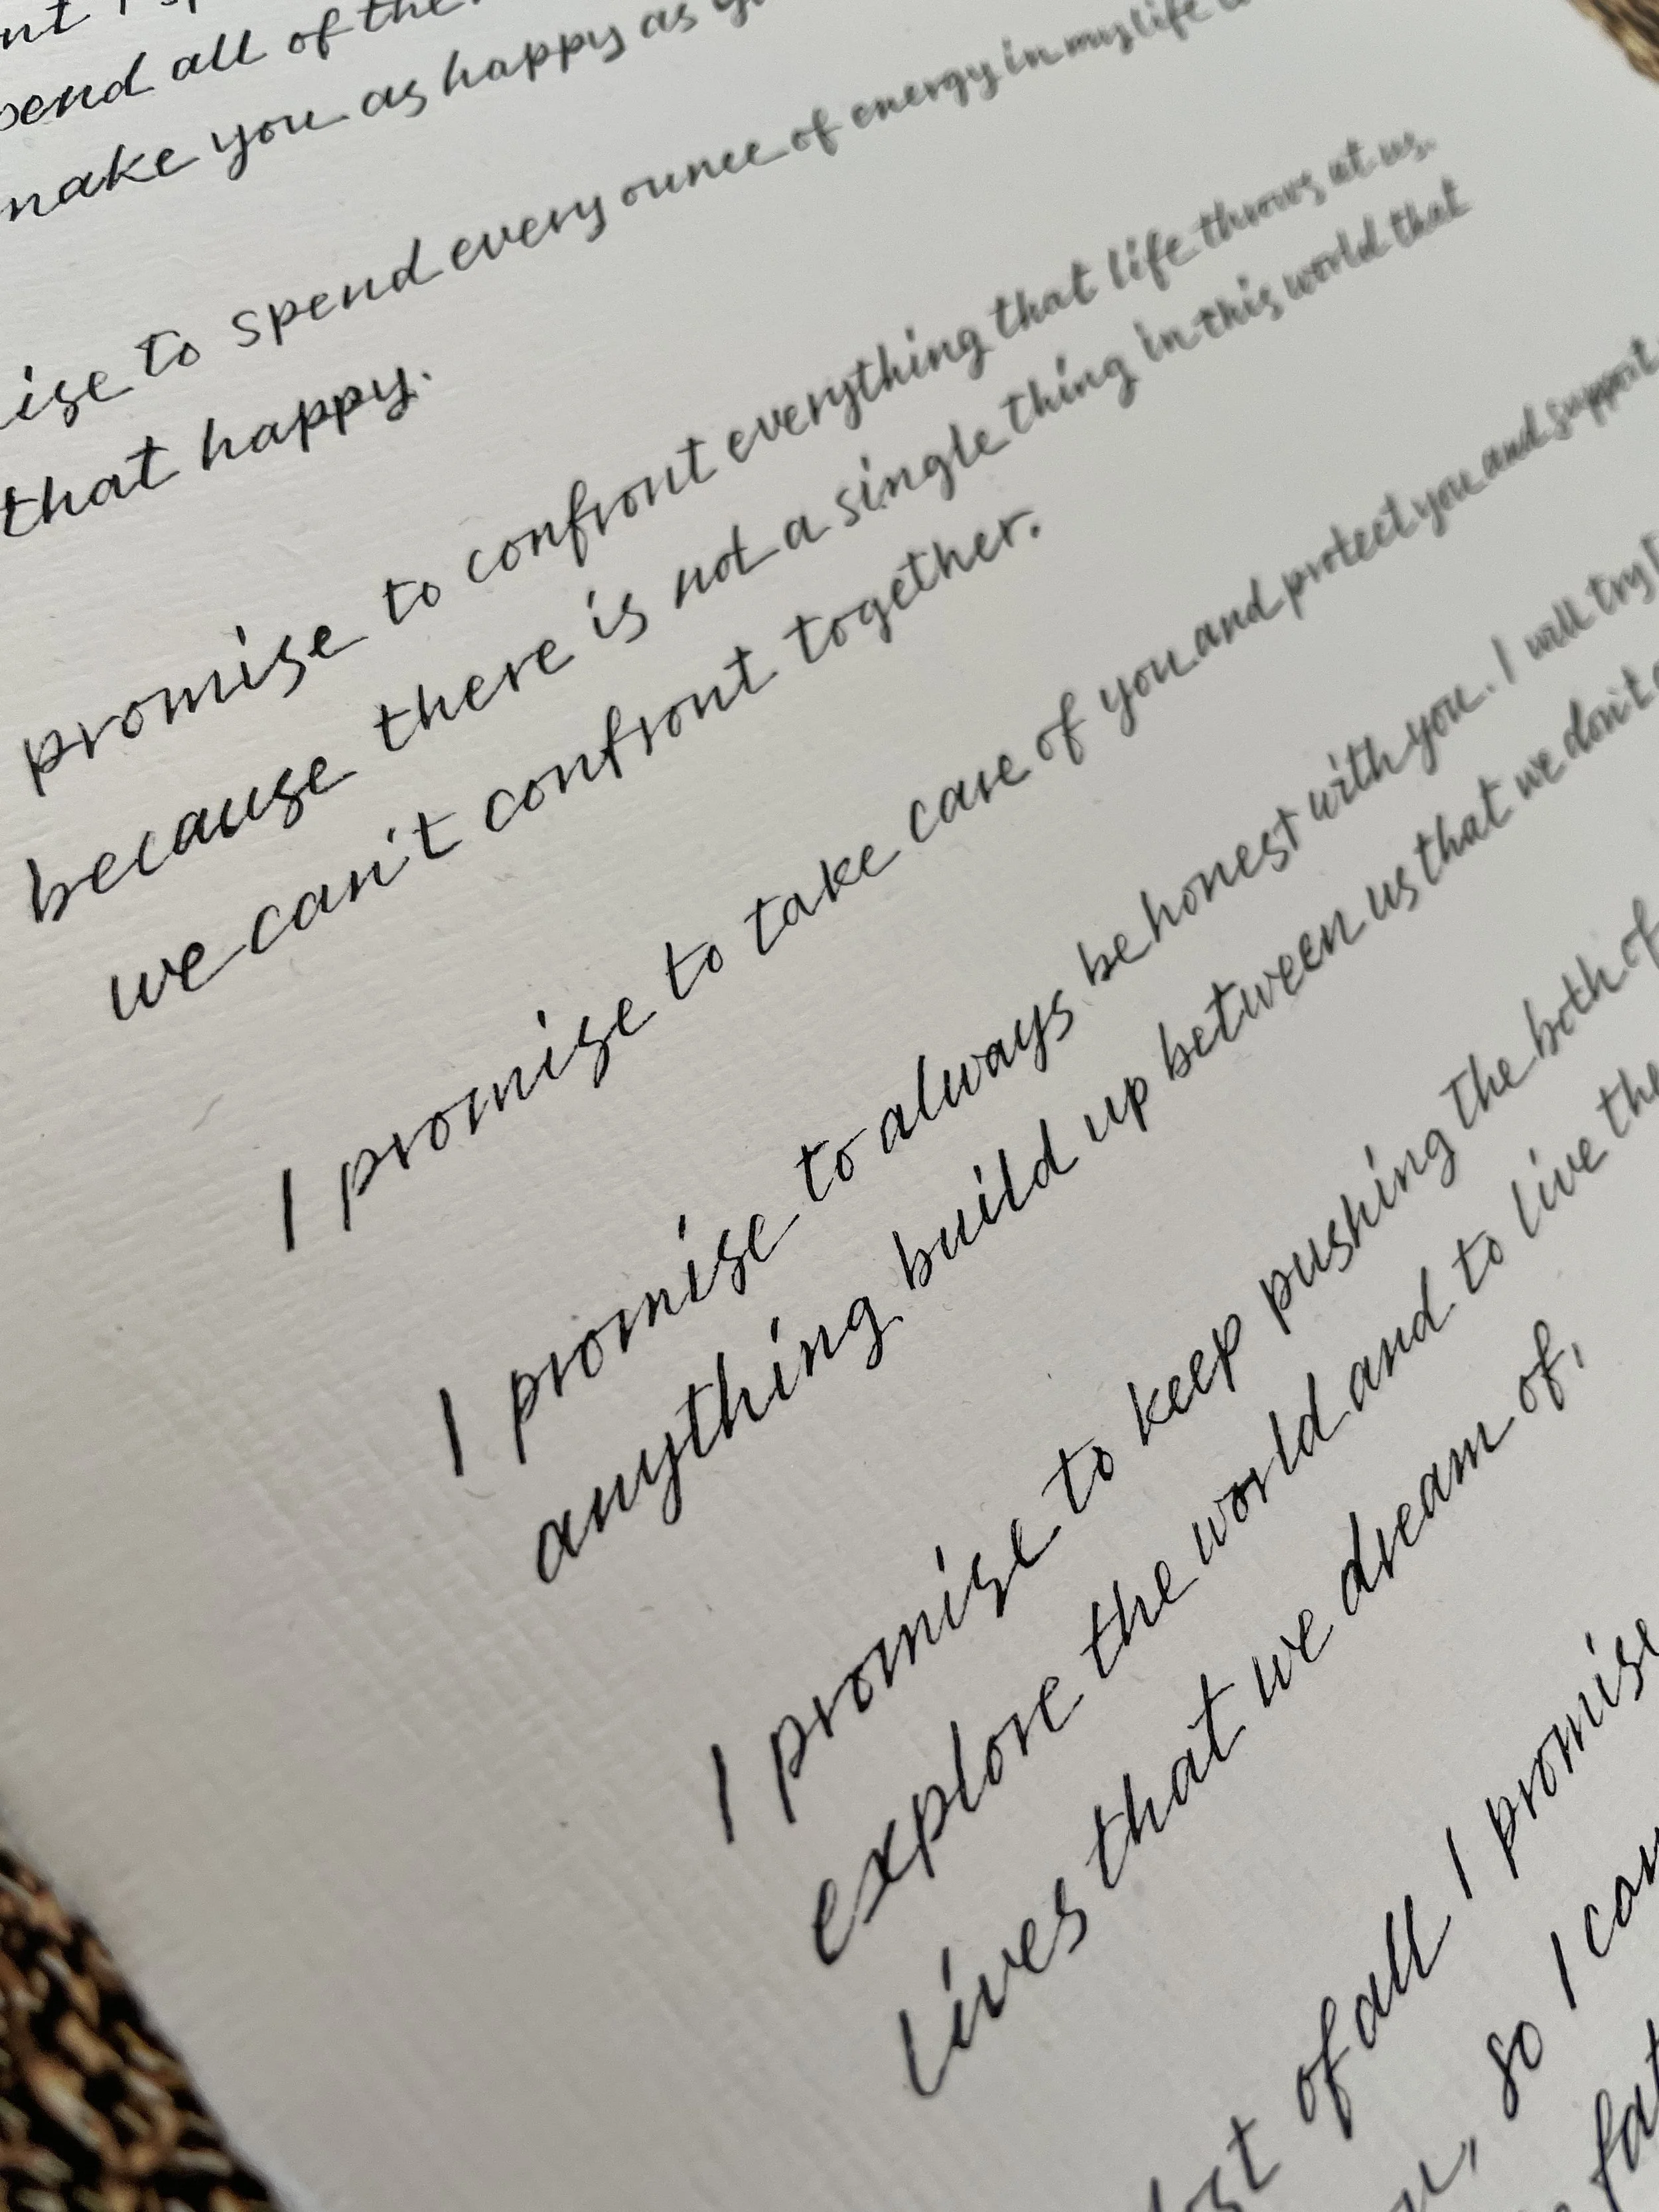 spend all of the
make you as happy as
to spend every ounce of energy in my life
that happy.
promise to confront everything that life throws at us.
because there is not a single thing in this world that
we can't confront together.
I promise to take care of you and protect you and support
I promise to always be honest with you. I will try
anything build up between us that we don't
I promise to keep pushing the both of
explore the world and to live the
lives that we dream of.
of all I promise
, so I can